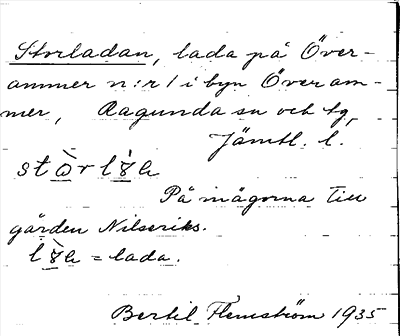 Storladan, lada på Över-
ammer n:r 1 i byn Överam-
mer, Ragunda sn och tg,
Jämtl. l.
På inägorna till
gården Nilseriks.
= lada.
Bertil Flemström 1935